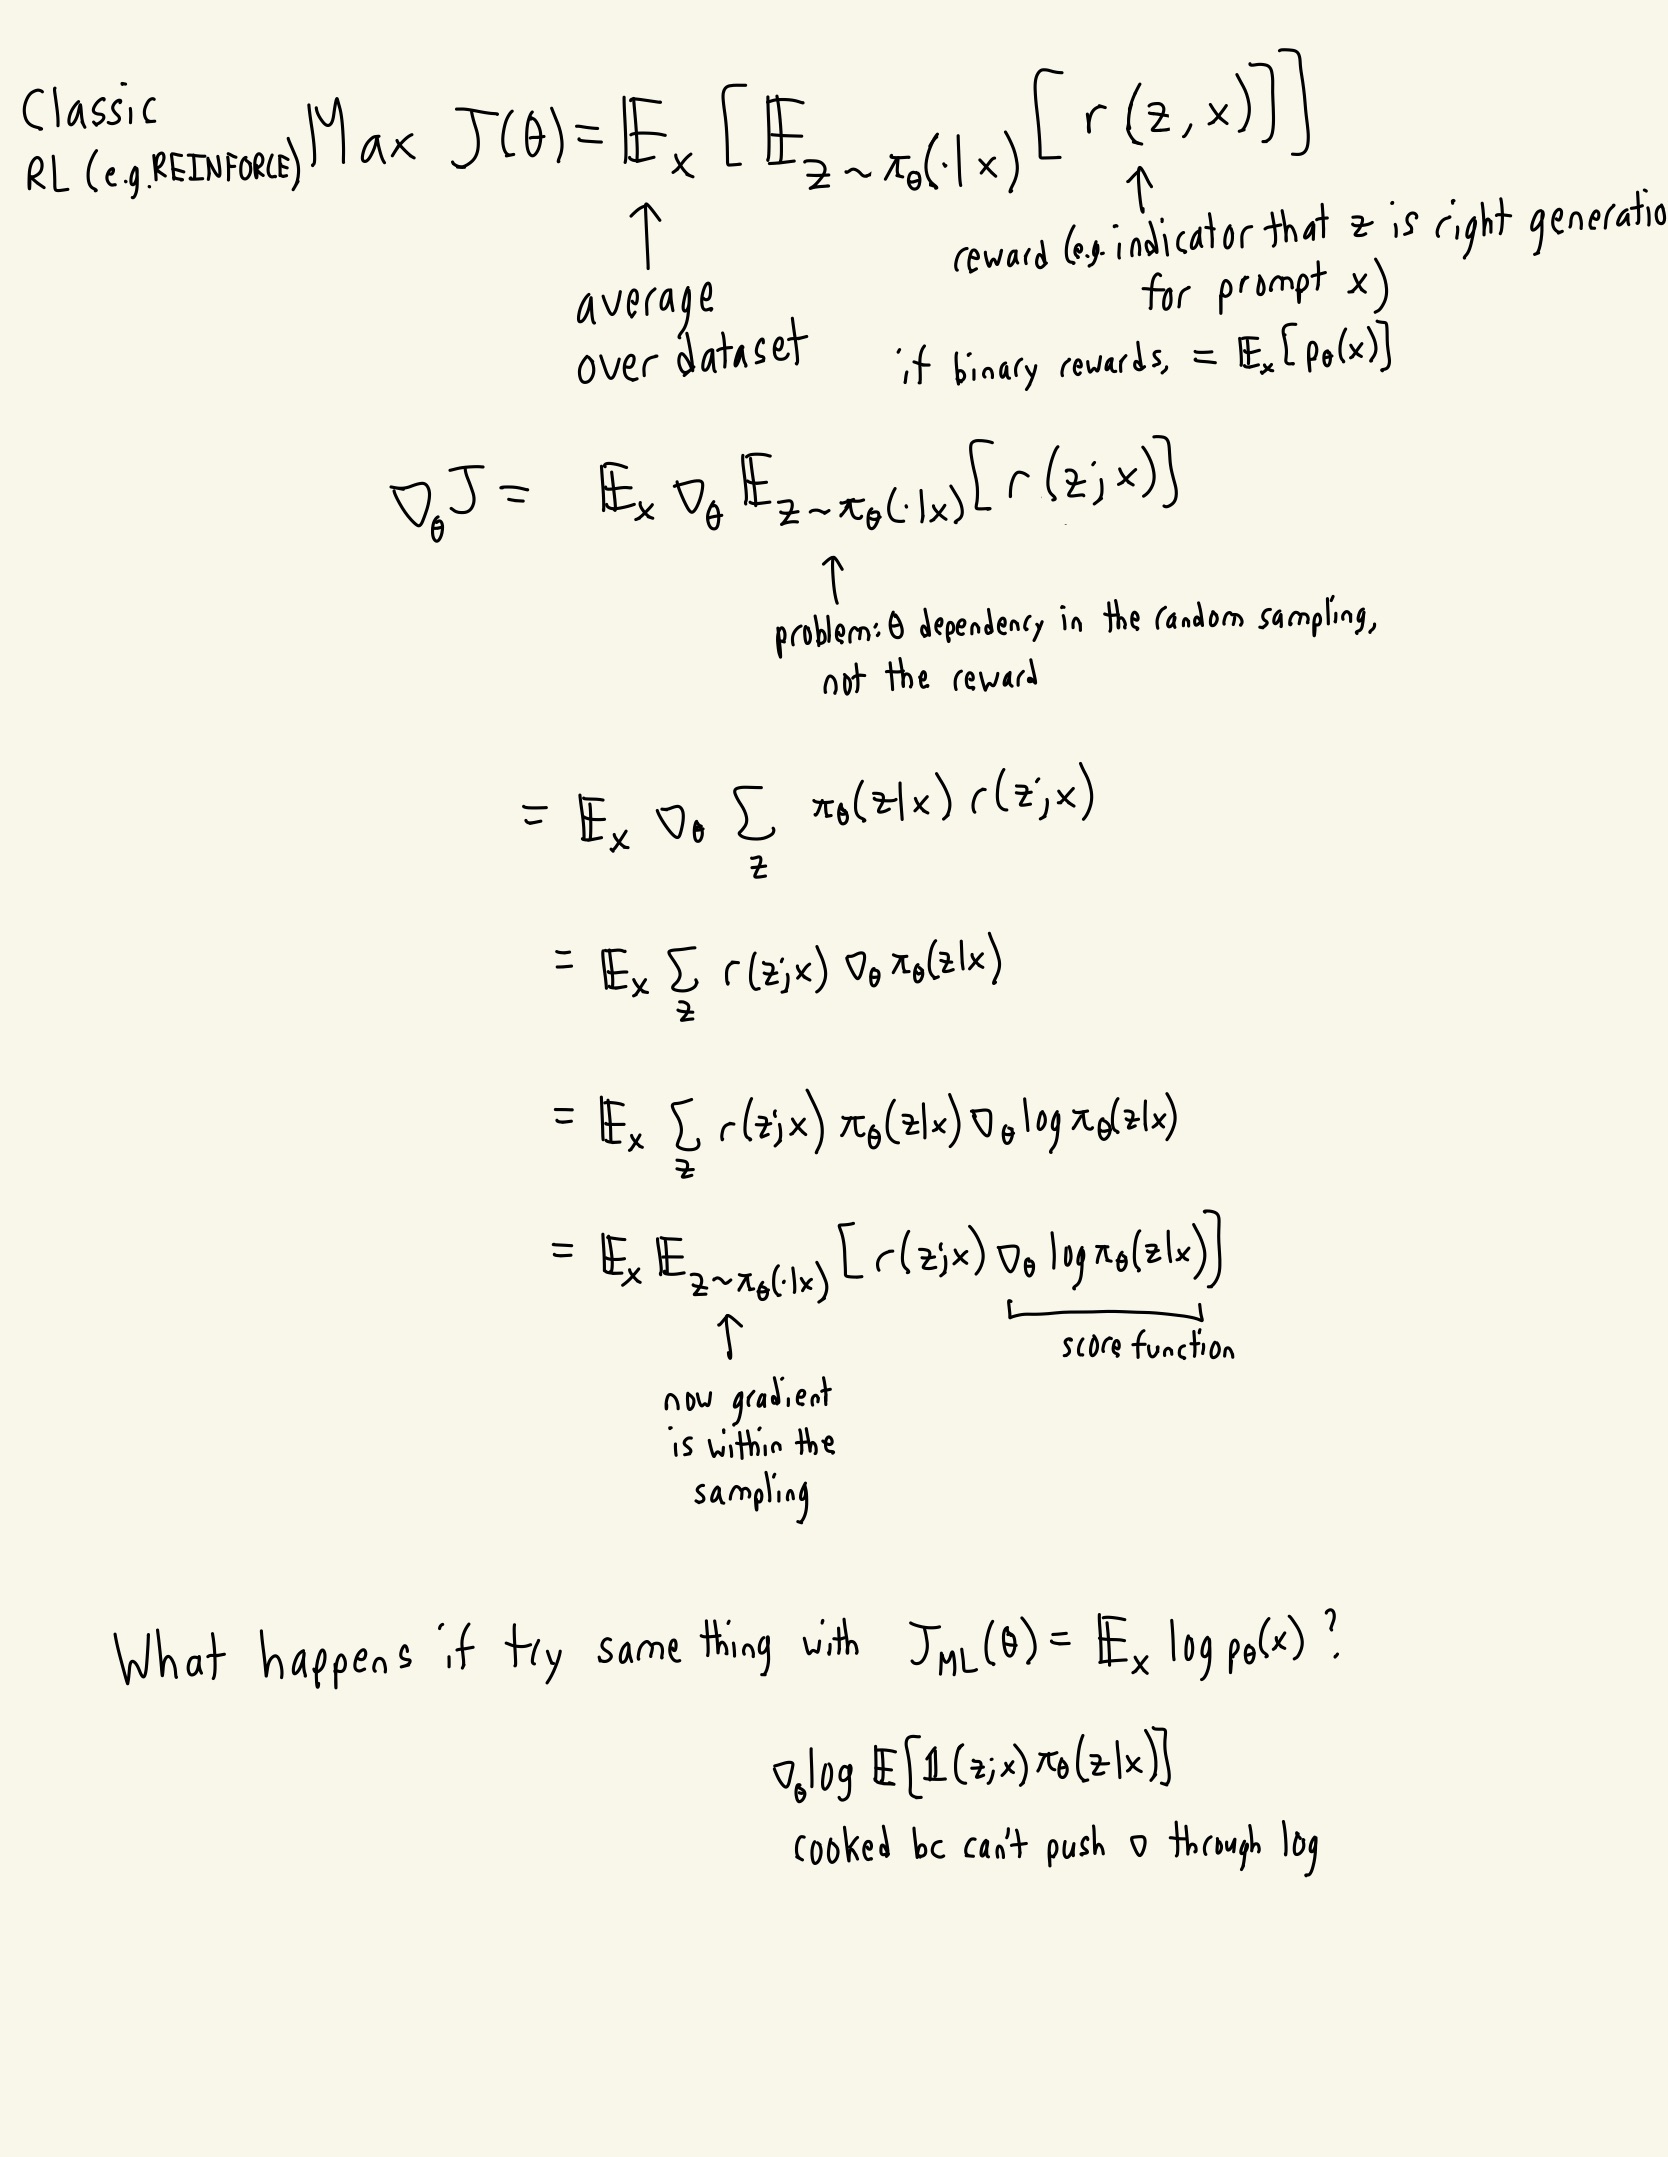 Classic
RL (e.g. REINFORCE) Max J(θ) = 𝔼ₓ [ 𝔼_{z∼π_θ(·|x)} [ r(z, x) ] ]
↑ average
over dataset
↑ reward (e.g. indicator that z is right generatio
for prompt x)
if binary rewards, = 𝔼ₓ[p_θ(x)]
∇_θ J = 𝔼ₓ ∇_θ 𝔼_{z∼π_θ(·|x)} [ r(z; x) ]
↑
problem: θ dependency in the random sampling,
not the reward
= 𝔼ₓ ∇_θ ∑_z π_θ(z|x) r(z; x)
= 𝔼ₓ ∑_z r(z; x) ∇_θ π_θ(z|x)
= 𝔼ₓ ∑_z r(z; x) π_θ(z|x) ∇_θ log π_θ(z|x)
= 𝔼ₓ 𝔼_{z∼π_θ(·|x)} [ r(z; x) ∇_θ log π_θ(z|x) ]
score function
↑
now gradient
is within the
sampling
What happens if try same thing with J_ML(θ) = 𝔼ₓ log p_θ(x) ?
∇_θ log 𝔼[𝟙(z; x) π_θ(z|x)]
cooked bc can't push ∇ through log